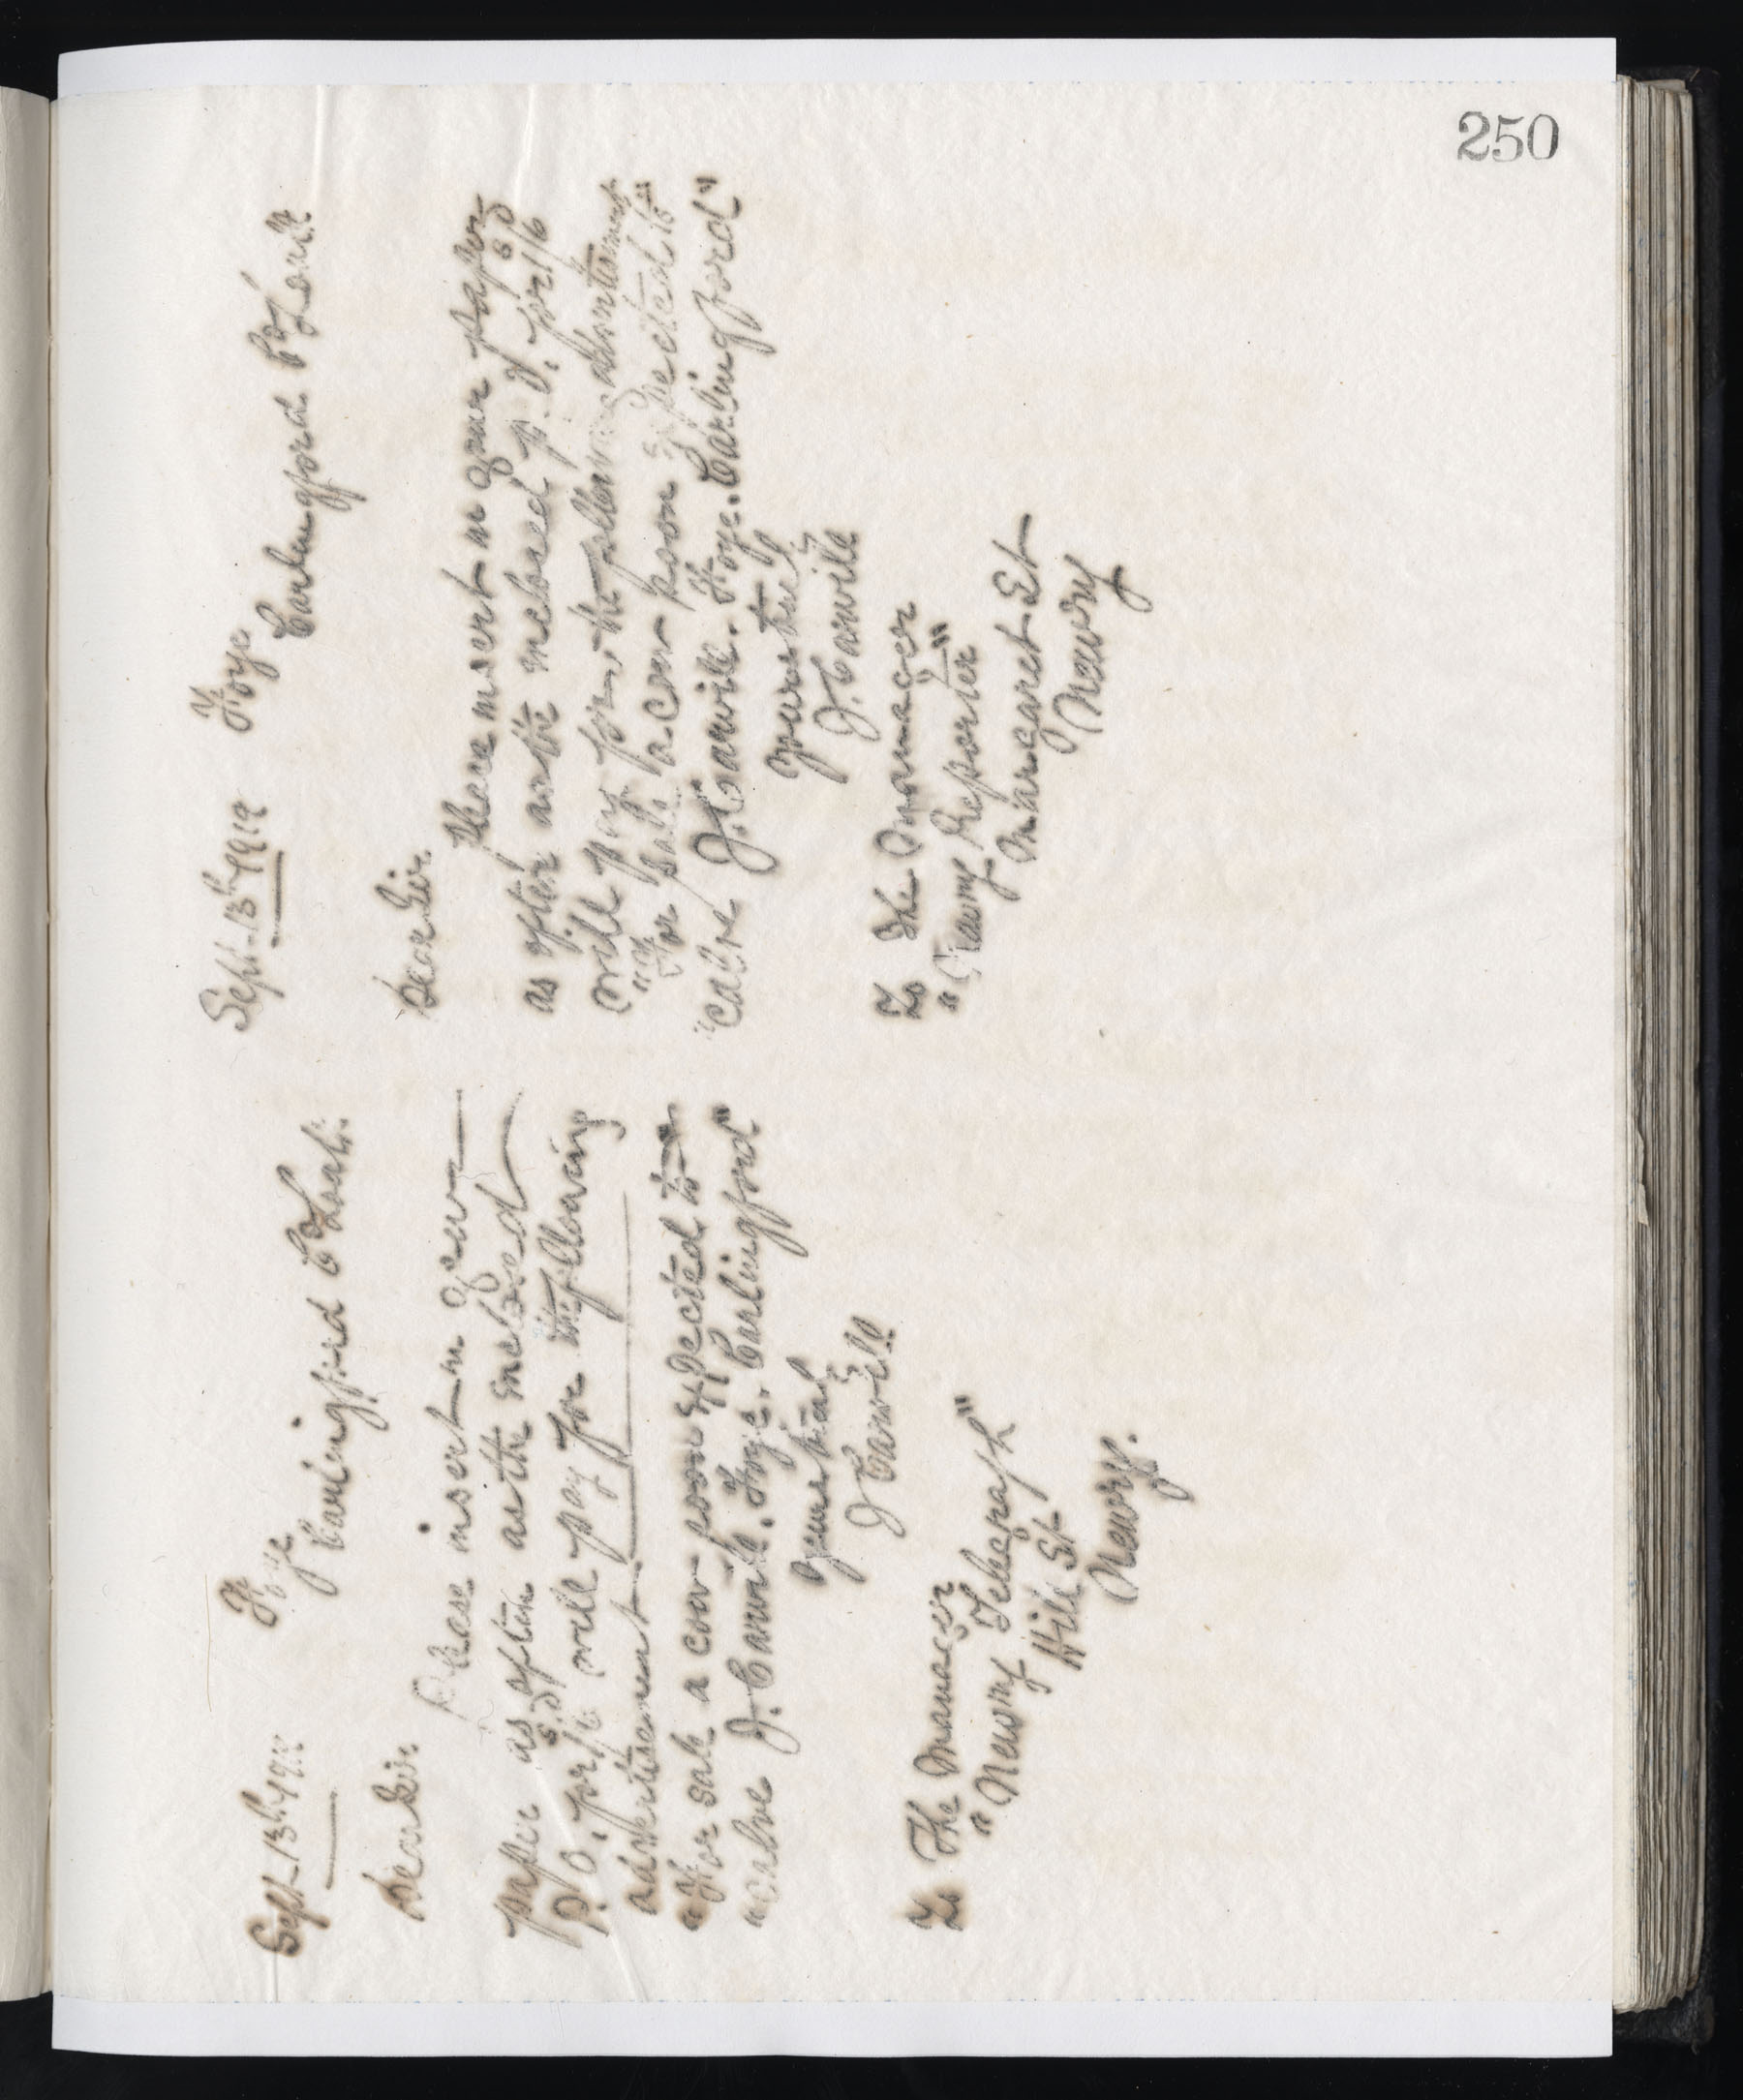 250
Sept 13th 1912 Foye
Carlingford Co Louth.
Dear Sir.
Please insert in your
paper as often as the inclosed
P.O. for 1s/6d will pay for the following
advertisement.
"For sale a cow soon expected to
"calve J. Carvill. Foye. Carlingford"
yours truly
J Carvill
To The Manager
"Newry Telegraph"
Hill St
Newry.
Sept 13th 1912 Foye
Carlingford Co Louth
Dear Sir.
Please insert in your paper
as often as the inclosed P.O. for 1s/6d
will pay for the following advertisement
"For sale a cow soon expected to"
"calve J. Carvill. Foye. Carlingford"
yours truly
J. Carvill
To The Manager
"Newry Reporter"
Margaret St
Newry